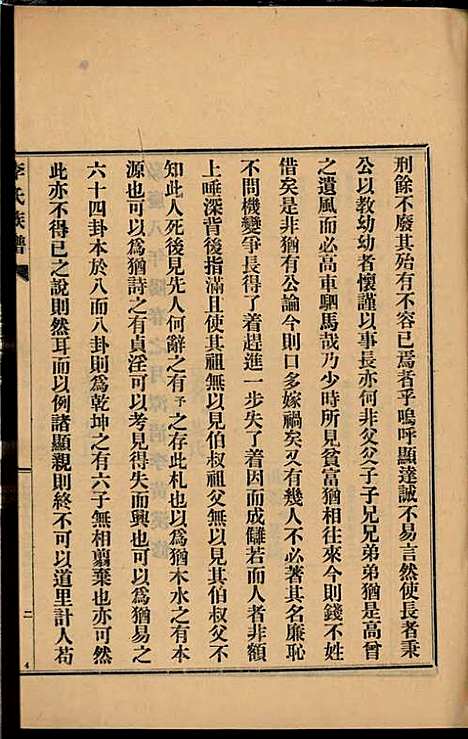 刑餘不廢其殆有不容已焉者乎嗚呼顯達誠不易言然使長者秉
公以教幼幼者懷謹以事長亦何非父父子子兄兄弟弟猶是高曾
之遺風而必高車駟馬哉乃少時所見貧富猶相往來今則錢不姓
借矣是非猶有公論今則口多嫁禍矣又有幾人不必著其名廉恥
不問機變爭長得了着趕進一步失了着因而成讎若而人者非額
上唾深背後指滿且使其祖無以見伯叔祖父無以見其伯叔父不
知此人死後見先人何辭之有予之存此札也以為猶木水之有本
源也可以為猶詩之有貞淫可以考見得失而興也可以為猶易之
六十四卦本於八而八卦則為乾坤之有六子無相翦棄也亦可然
此亦不得已之說則然耳而以例諸顯親則終不可以道里計人苟
李氏族譜
二
4